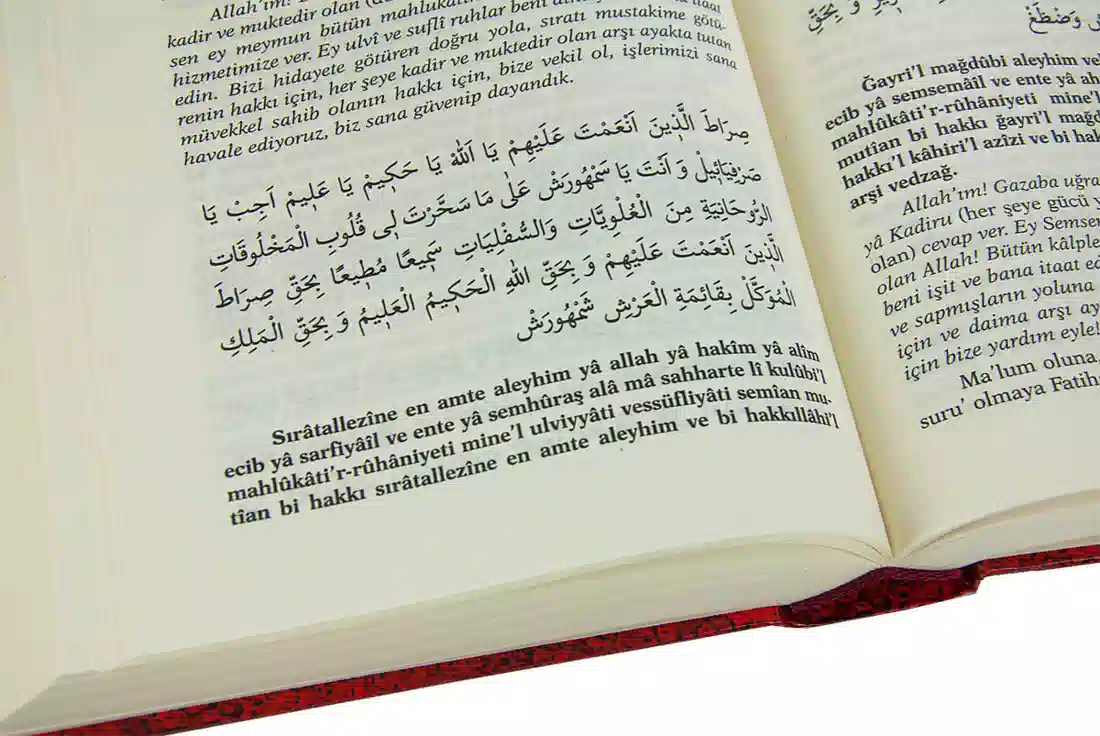 Allah'ım!
kadir ve muktedir olan
sen ey meymun bütün mahlukatın
hizmetimize ver. Ey ulvî ve suflî ruhlar beni
edin. Bizi hidayete götüren doğru yola, sıratı mustakime götü-
renin hakkı için, her şeye kadir ve muktedir olan arşı ayakta tutan
müvekkel sahib olanın hakkı için, bize vekil ol, işlerimizi sana
havale ediyoruz, biz sana güvenip dayandık.
صِرَاطَ الَّذِينَ اَنْعَمْتَ عَلَيْهِمْ يَا اَللهُ يَا حَكِيمُ يَا عَلِيمُ اَجِبْ يَا
صَرْفِيَائِيلُ وَ اَنْتَ يَا سَمْهُورَشْ عَلٰى مَا سَخَّرْتَ لِى قُلُوبِ الْمَخْلُوقَاتِ
الرُّوحَانِيَّةِ مِنَ الْعُلْوِيَّاتِ وَالسُّفْلِيَاتِ سَمِيعًا مُطِيعًا بِحَقِّ صِرَاطَ
الَّذِينَ اَنْعَمْتَ عَلَيْهِمْ وَ بِحَقِّ اللهِ الْحَكِيمُ الْعَلِيمُ وَ بِحَقِّ الْمَلِكِ
الْمُوَكَّلْ بِقَائِمَةِ الْعَرْشِ شَمْهُورَشْ
Sırâtallezîne en amte aleyhim yâ allah yâ hakîm yâ alîm
ecib yâ sarfiyâîl ve ente yâ semhûraş alâ mâ sahharte lî kulûbi'l
mahlûkâti'r-rûhâniyeti mine'l ulviyyâti vessüfliyâti semîan mu-
tîan bi hakkı sırâtallezîne en amte aleyhim ve bi hakkıllâhi'l
وَ بِحَقِّ
وَضَطَغْ
Ğayri'l mağdûbi aleyhim
ecib yâ semsemâîl ve ente yâ
mahlûkâti'r-rûhâniyeti mine'l
mutîan bi hakkı ğayri'l
hakkı'l kâhiri'l azîzi ve bi
arşi vedzağ.
Allah'ım! Gazaba
yâ Kadiru (her şeye gücü
olan) cevap ver. Ey
olan Allah! Bütün
beni işit ve bana itaat
ve sapmışların yoluna
için ve daima arşı
için bize yardım eyle!
Ma'lum oluna,
suru' olmaya